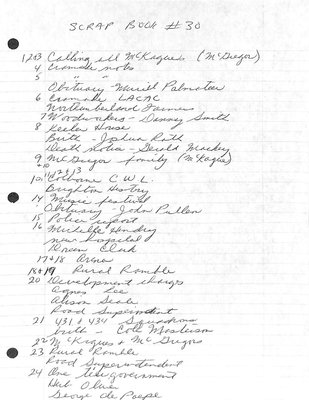 SCRAP BOOK #30
1,2+3 Calling all McKagues (McGregor)
4 Cramahe notes
5 " "
Obituary - Muriel Palmateer
6 Cramahe LACAC
Northumberland Farmers
7 Woodworkers - Danny Smith
8 Keeler House
Birth - Joshua Rath
Death notice - Gerald Mackey
9 McGregor family (McKague)
10, 11, 12 & 13 Colborne C.W.L.
Brighton History
14 Music festival
Obituary - John Pullen
15 Police report
16 Michelle Hendry
new hospital
Dream Club
17+18 Arena
18+19 Rural Ramble
20 Development charges
Agnes Lee
Alison Seale
Road Superintendent
21 431 + 434 Squadrons
birth - Cole Masterson
22 McKagues & McGregors
23 Rural Ramble
Road Superintendent
24 One tier government
Herb Olver
George de Paepe